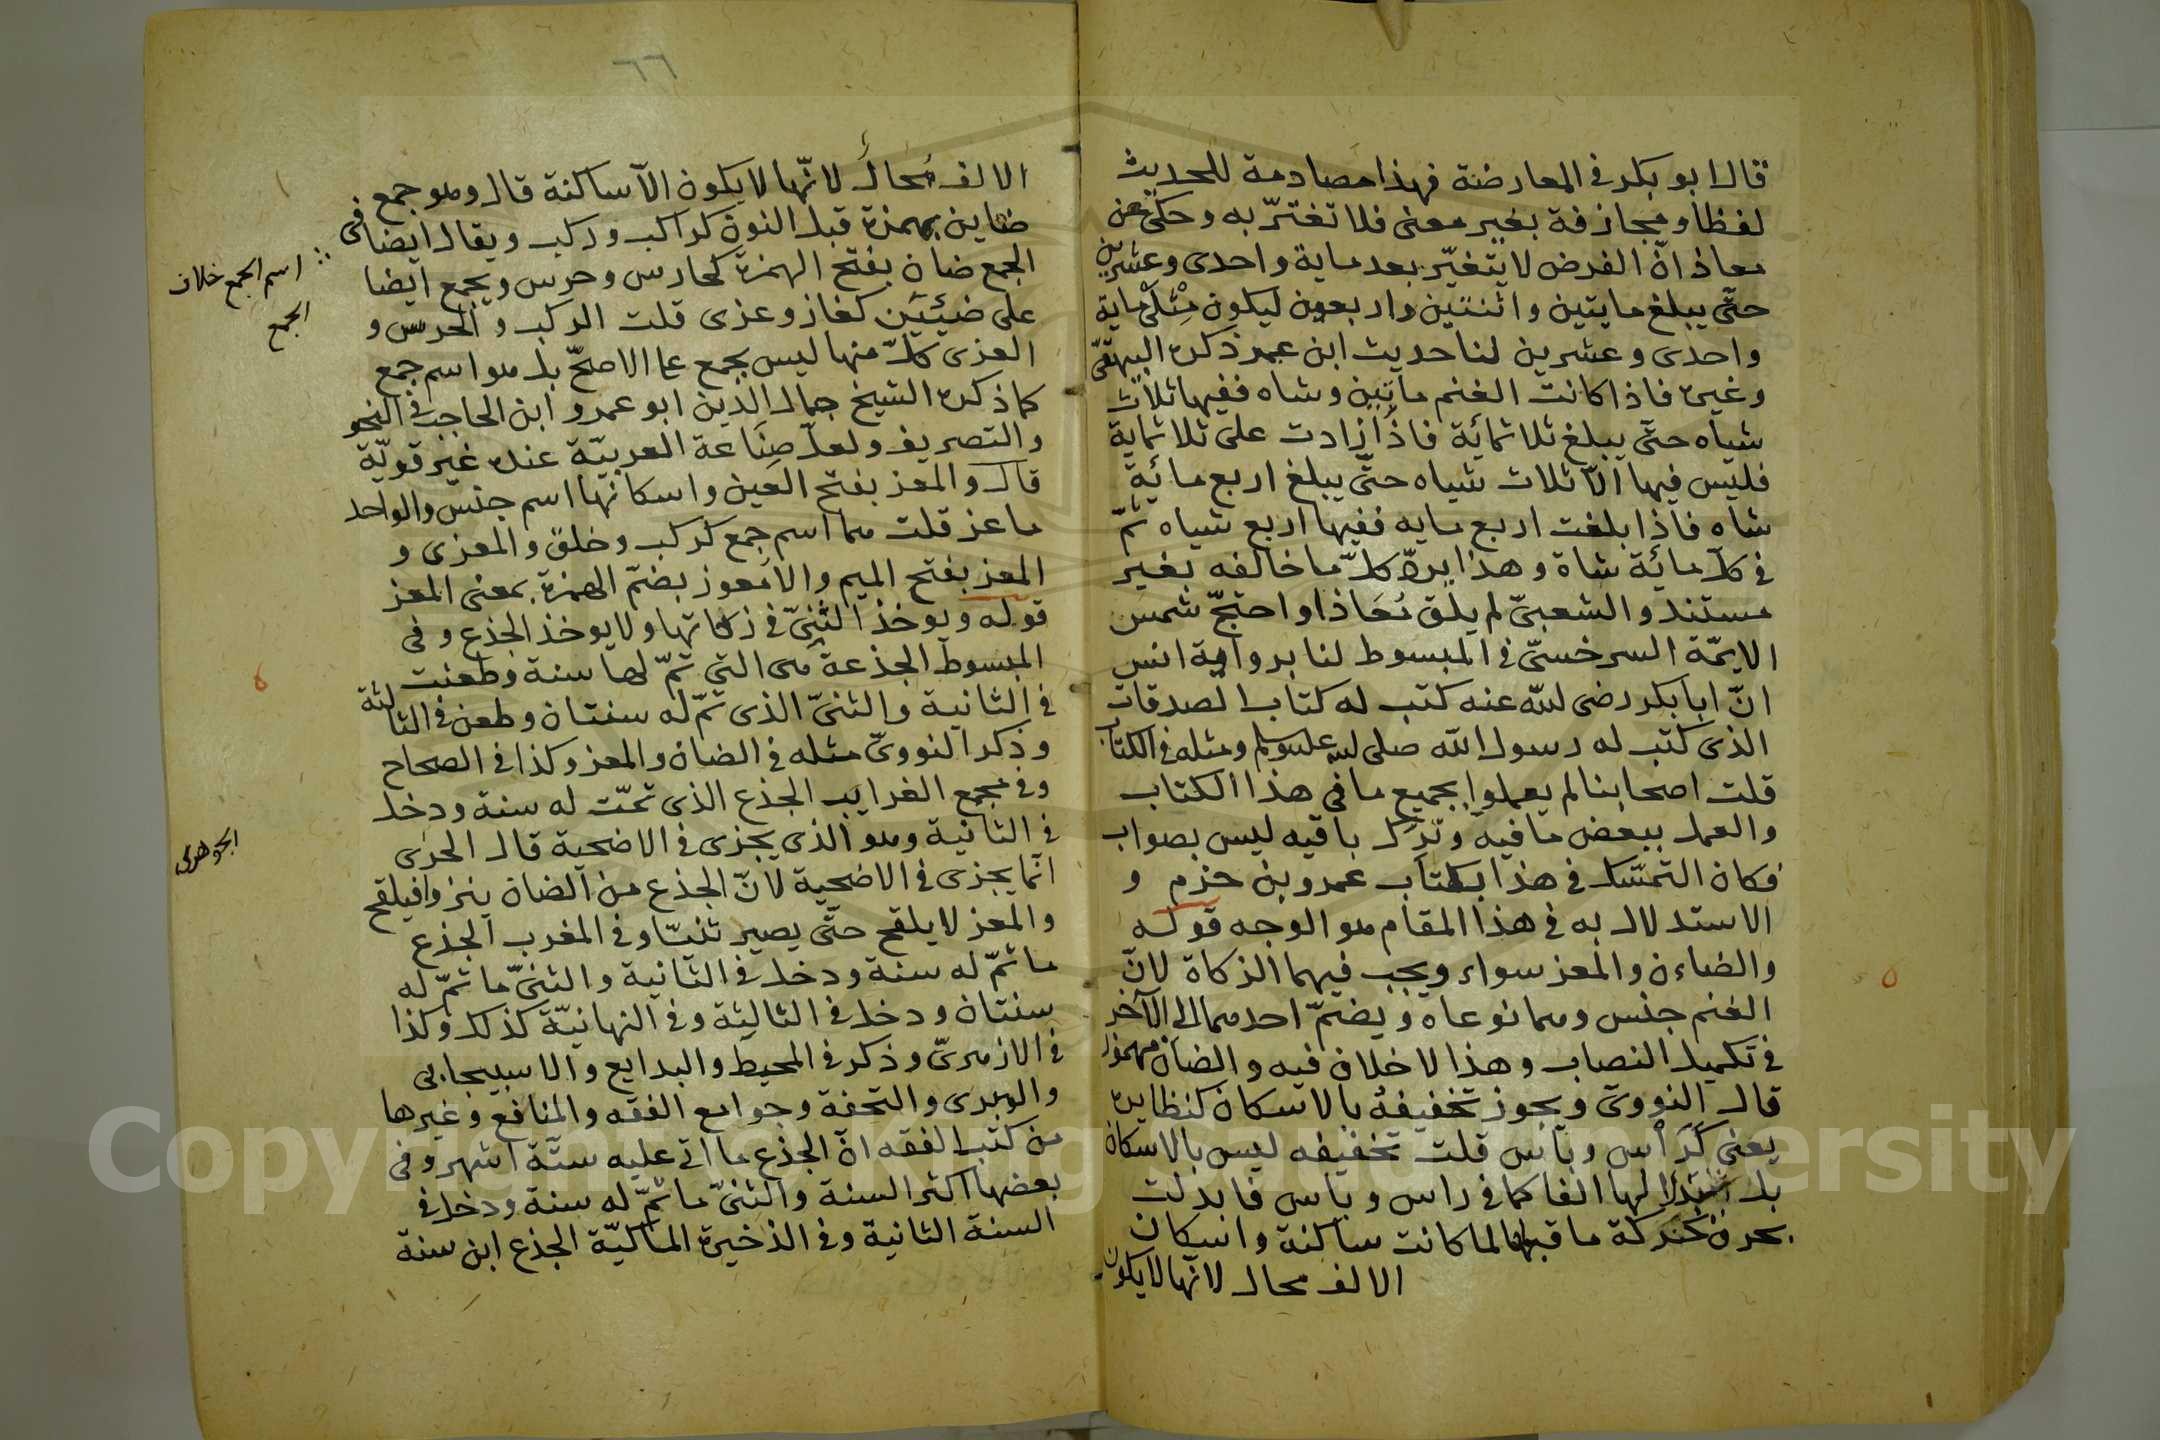 قال ابو بكر في المعارضة فهذا مصادمة للحديث
لفظا ومجازفة بغير معنى فلا تغترّ به وحكى عن
معاذ انّ الفرض لا يتغيّر بعد ماية واحدى وعشرين
حتّى يبلغ مايتين واثنتين واربعون ليكون مثلى ماية
واحدى وعشرين لنا حديث ابن عمر ذكره البيهقىّ
وغيره فاذا كانت الغنم ماتين وشاه ففيها ثلاث
شياه حتّى يبلغ ثلاثمائة فاذا زادت على ثلاثماية
فليس فيها الّا ثلاث شياه حتّى يبلغ اربع مائة
شاه فاذا بلغت اربع مايه ففيها اربع شياه ثمّ
في كلّ مائة شاة وهذا يردّ كلّ ما خالفه بغير
مستند والشعبىّ لم يلق مُعَاذا واحتجّ شمس
الايمّة السرخسىّ في المبسوط لنا برواية انس
انّ ابا بكر رضى الله عنه كتب له كتاب الصدقات
الذى كتب له رسول الله صلى الله عليه وسلم ومثله في الكتاب
قلت اصحابنا لم يعملوا بجميع ما في هذا الكتاب
والعمل ببعض ما فيه وترك باقيه ليس بصواب
فكان التمسّك في هذا بكتاب عمرو بن حزم و
الاستدلال به في هذا المقام هو الوجه قوله
والضاءن والمعز سواء ويجب فيهما الزكاة لانّ
الغنم جنس وهما نوعاه ويضمّ احدهما الى الآخر
في تكميل النصاب وهذا لا خلاف فيه والضان مهموز
قال النووىّ ويجوز تخفيفهُ بالاسكان كنظايره
يعنى كَرَأس وبَأس قلت تخفيفه ليس بالاسكان
بل الها الفا كما في راس وباس فابدلت
بحرف كحركة ما قبلها لما كانت ساكنة واسكان
الالف محال لانّها لا يكون
٦٦
الالف مُحال لانّها لا يكون الّا ساكنة قال وهو جمع
ضاين بهمزة قبل النون كراكب وركب ويقال ايضا في
الجمع ضان بفتح الهمزة كحارس وحرس ويجمع ايضا
على ضَئِين كغاز وغزى قلت الركب والحرس و
الغزى كلّ منها ليس بجمع على الاصحّ بل هو اسم جمع
اسم الجمع خلاف
الجمع
كما ذكره الشيخ جمال الدين ابو عمرو ابن الحاجب في النحو
والتصريف ولعلّ صناعة العربيّة عنده غير قويّة
قال والمعز بفتح العين واسكانها اسم جنس والواحد
ماعز قلت هما اسم جمع كركب وخلق والمعزى و
المعز بفتح الميم والامعوز بضمّ الهمزة بمعنى المعز
قوله ويوخذ الثنىّ في زكاتها ولا يوخذ الجذع وفي
المبسوط الجذعة هى التى تمّ لها سنة وطعنت
في الثانية والثنىّ الذى تمّ له سنتان وطعن في الثالثة
وذكر النووىّ مثله في الضان والمعز وكذا في الصحاح
وفي مجمع الغرايب الجذع الذى تمّت له سنة ودخل
في الثانية وهو الذى يجزى في الاضحية قال الحربى
الجوهرى
انّما يجزى في الاضحية لانّ الجذع من الضان ينزوا فيلقح
والمعز لا يلقح حتّى يصير ثنيّا وفي المغرب الجذع
ما تمّ له سنة ودخل في الثانية والثنىّ ما تمّ له
سنتان ودخل في الثالثة وفي النهانيّة كذلك وكذا
في الازهرىّ وذكر في المحيط والبدايع والاسبيجابى
والوبرى والتحفة وجوامع الفقه والمنافع وغيرها
من كتب الفقه انّ الجذع ما اتى عليه ستّة اشهر وفى
بعضها اكثر السنة والثنىّ ما تمّ له سنة ودخل في
السنة الثانية وفي الذخيرة المالكيّة الجذع ابن سنة
Copyright © King Saud University